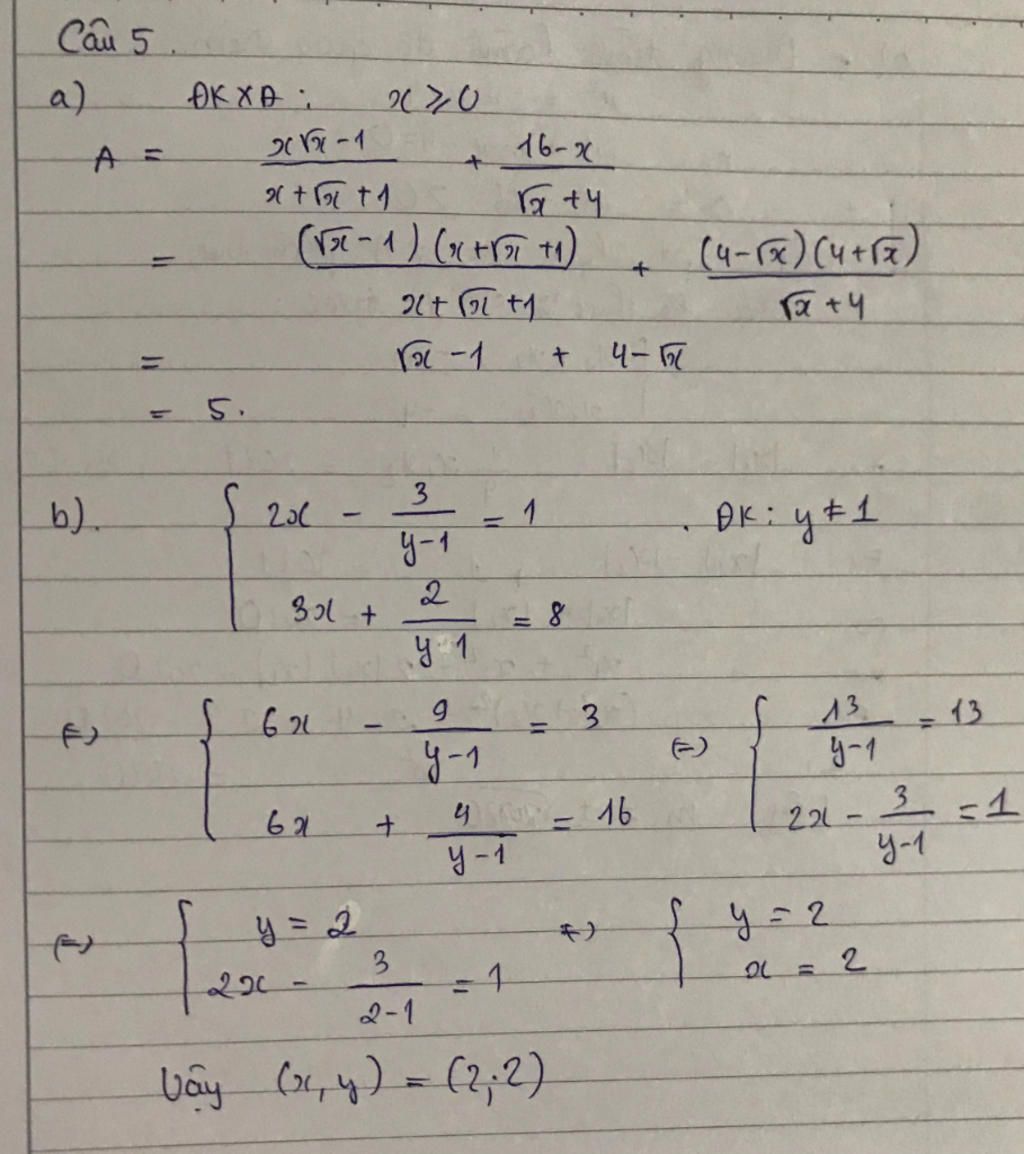 Câu 5.
a) ĐKXĐ: x ≥ 0
A = (x√x - 1)/(x + √x + 1) + (16 - x)/(√x + 4)
= ((√x - 1)(x + √x + 1))/(x + √x + 1) + ((4 - √x)(4 + √x))/(√x + 4)
= √x - 1 + 4 - √x
= 5.
b). { 2x - 3/(y-1) = 1 . ĐK: y ≠ 1
3x + 2/(y-1) = 8
⇔ { 6x - 9/(y-1) = 3 ⇔ { 13/(y-1) = 13
6x + 4/(y-1) = 16 2x - 3/(y-1) = 1
⇔ { y = 2 ⇔ { y = 2
2x - 3/(2-1) = 1 x = 2
Vậy (x, y) = (2; 2)